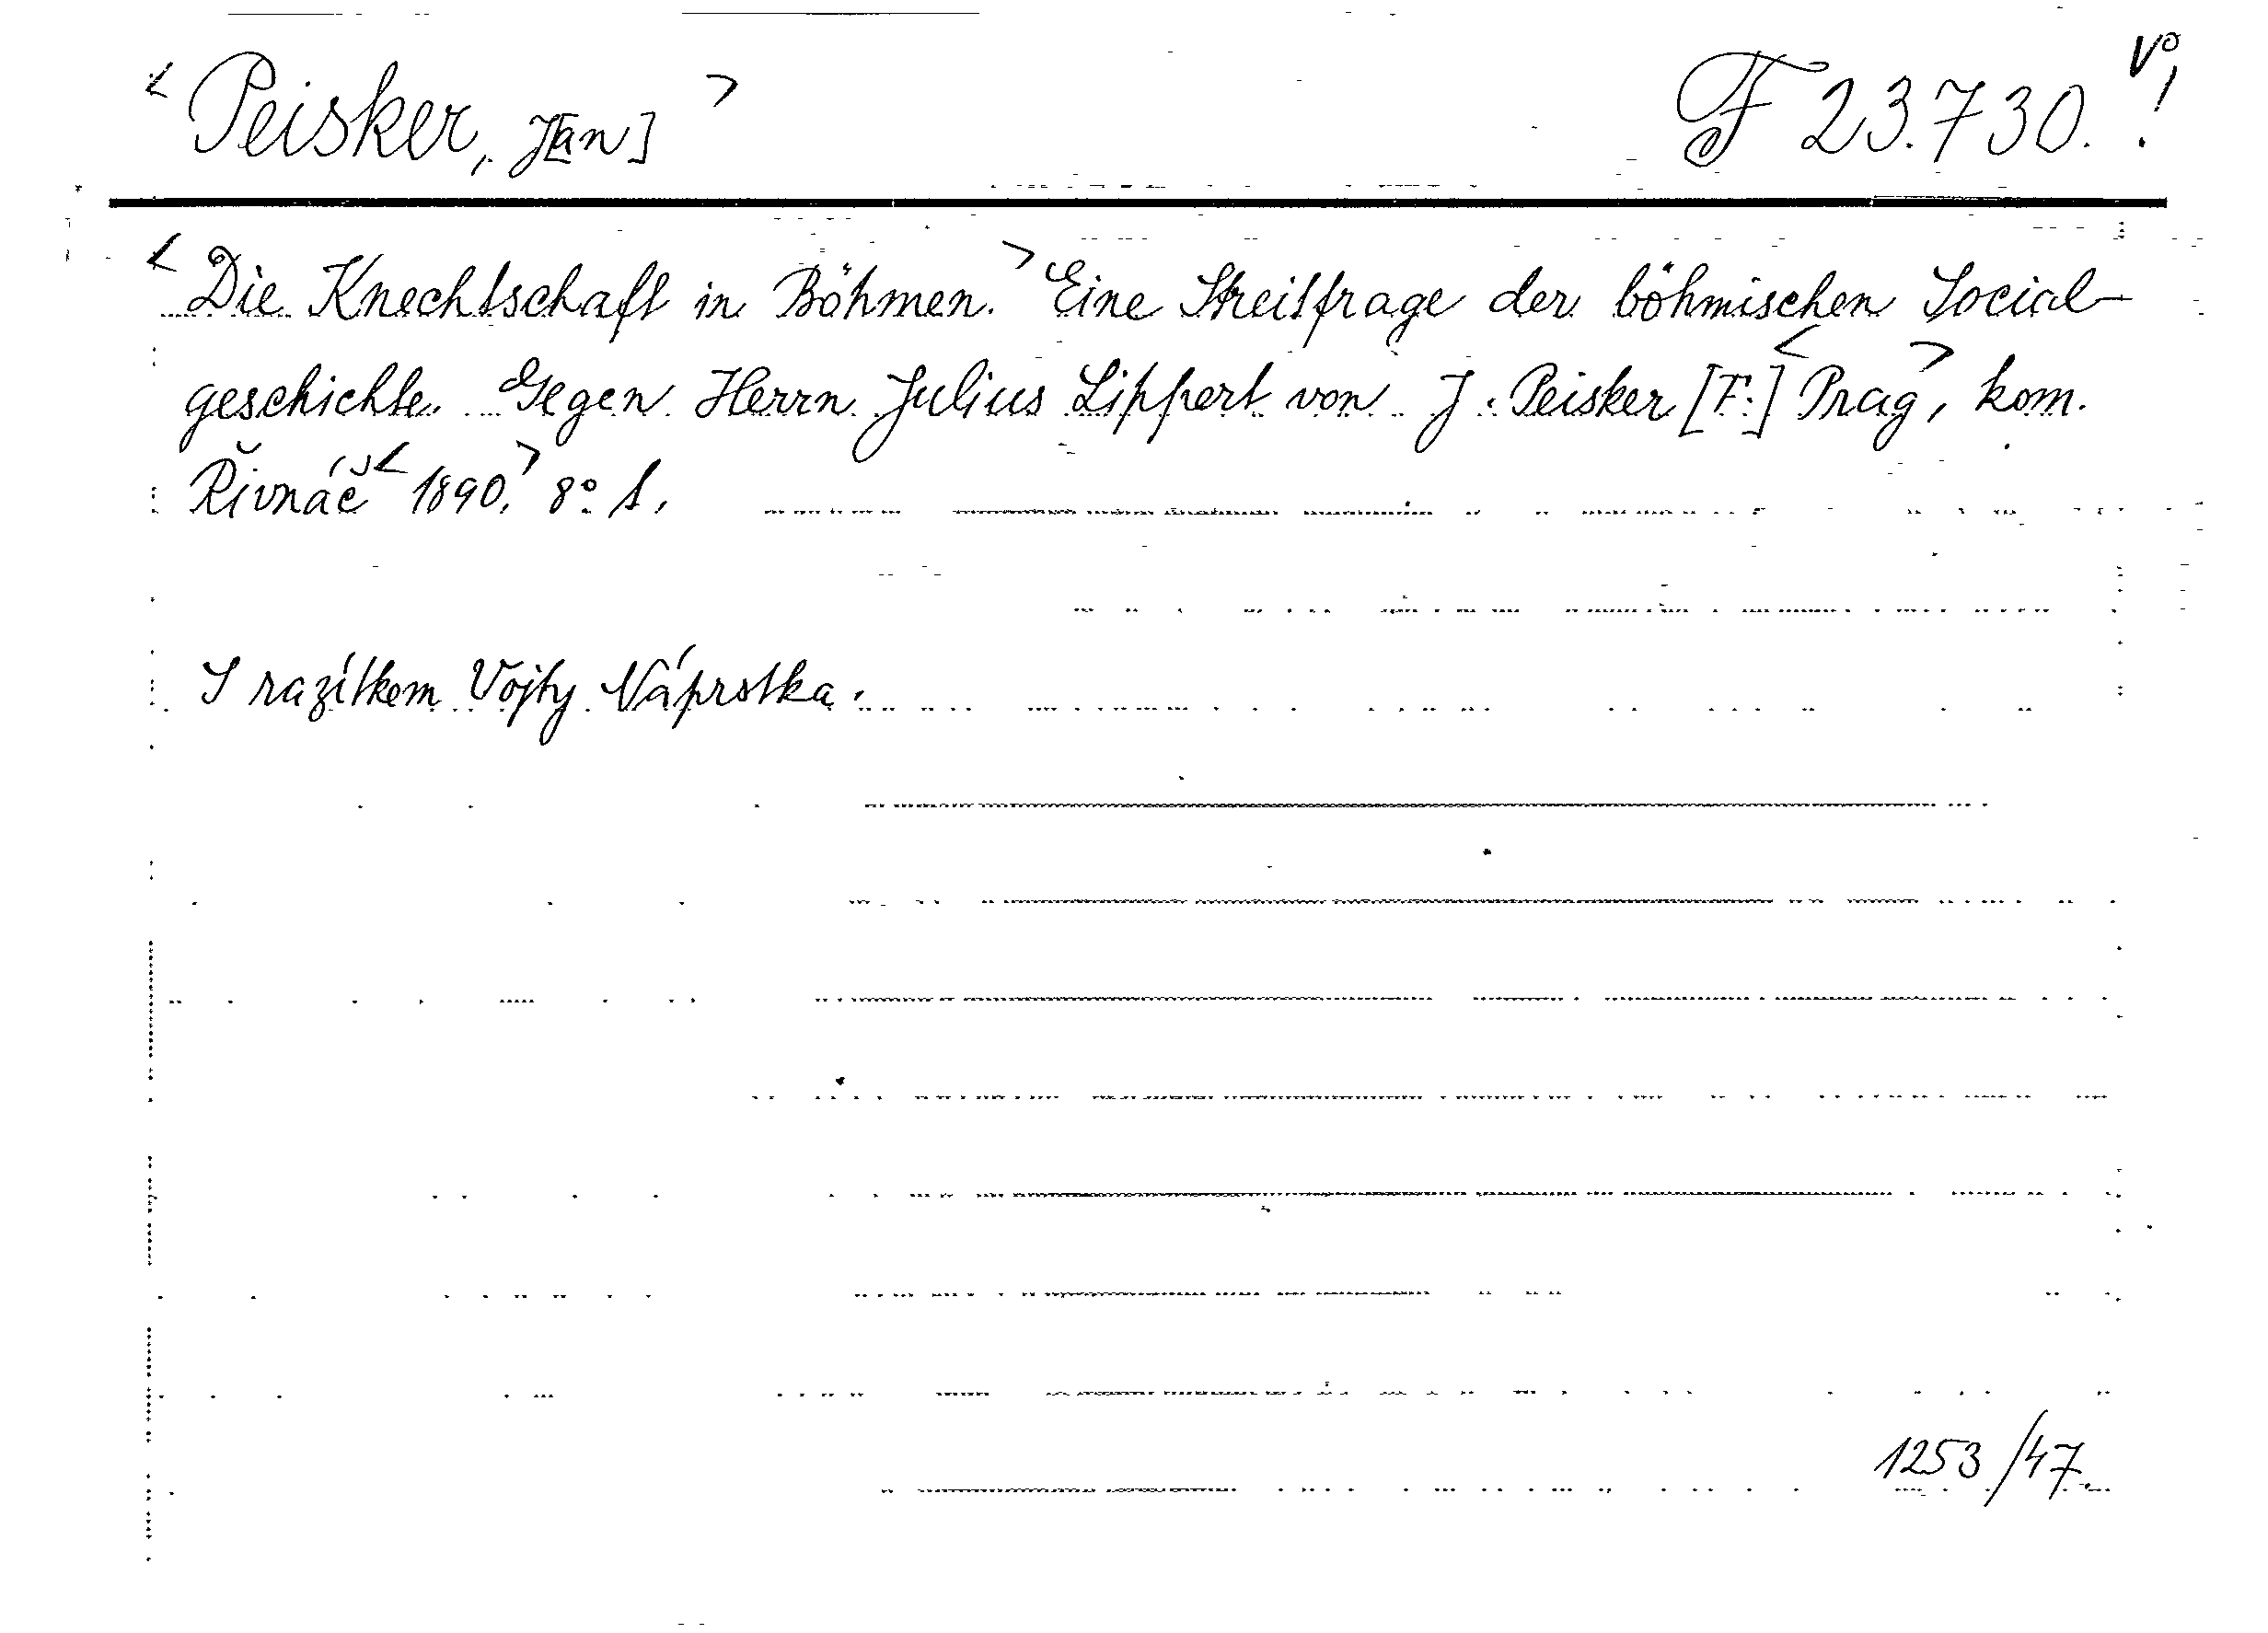 < Peisker, J[an] > F 23.730. V°!
< Die Knechtschaft in Böhmen. > Eine Streitfrage der böhmischen Social-
geschichte. Gegen Herrn Julius Lippert von J. Peisker [F:] < Prag >, kom.
Řivnáč < 1890. > 8° 1.
S razítkem Vojty Náprstka.
1253/47.